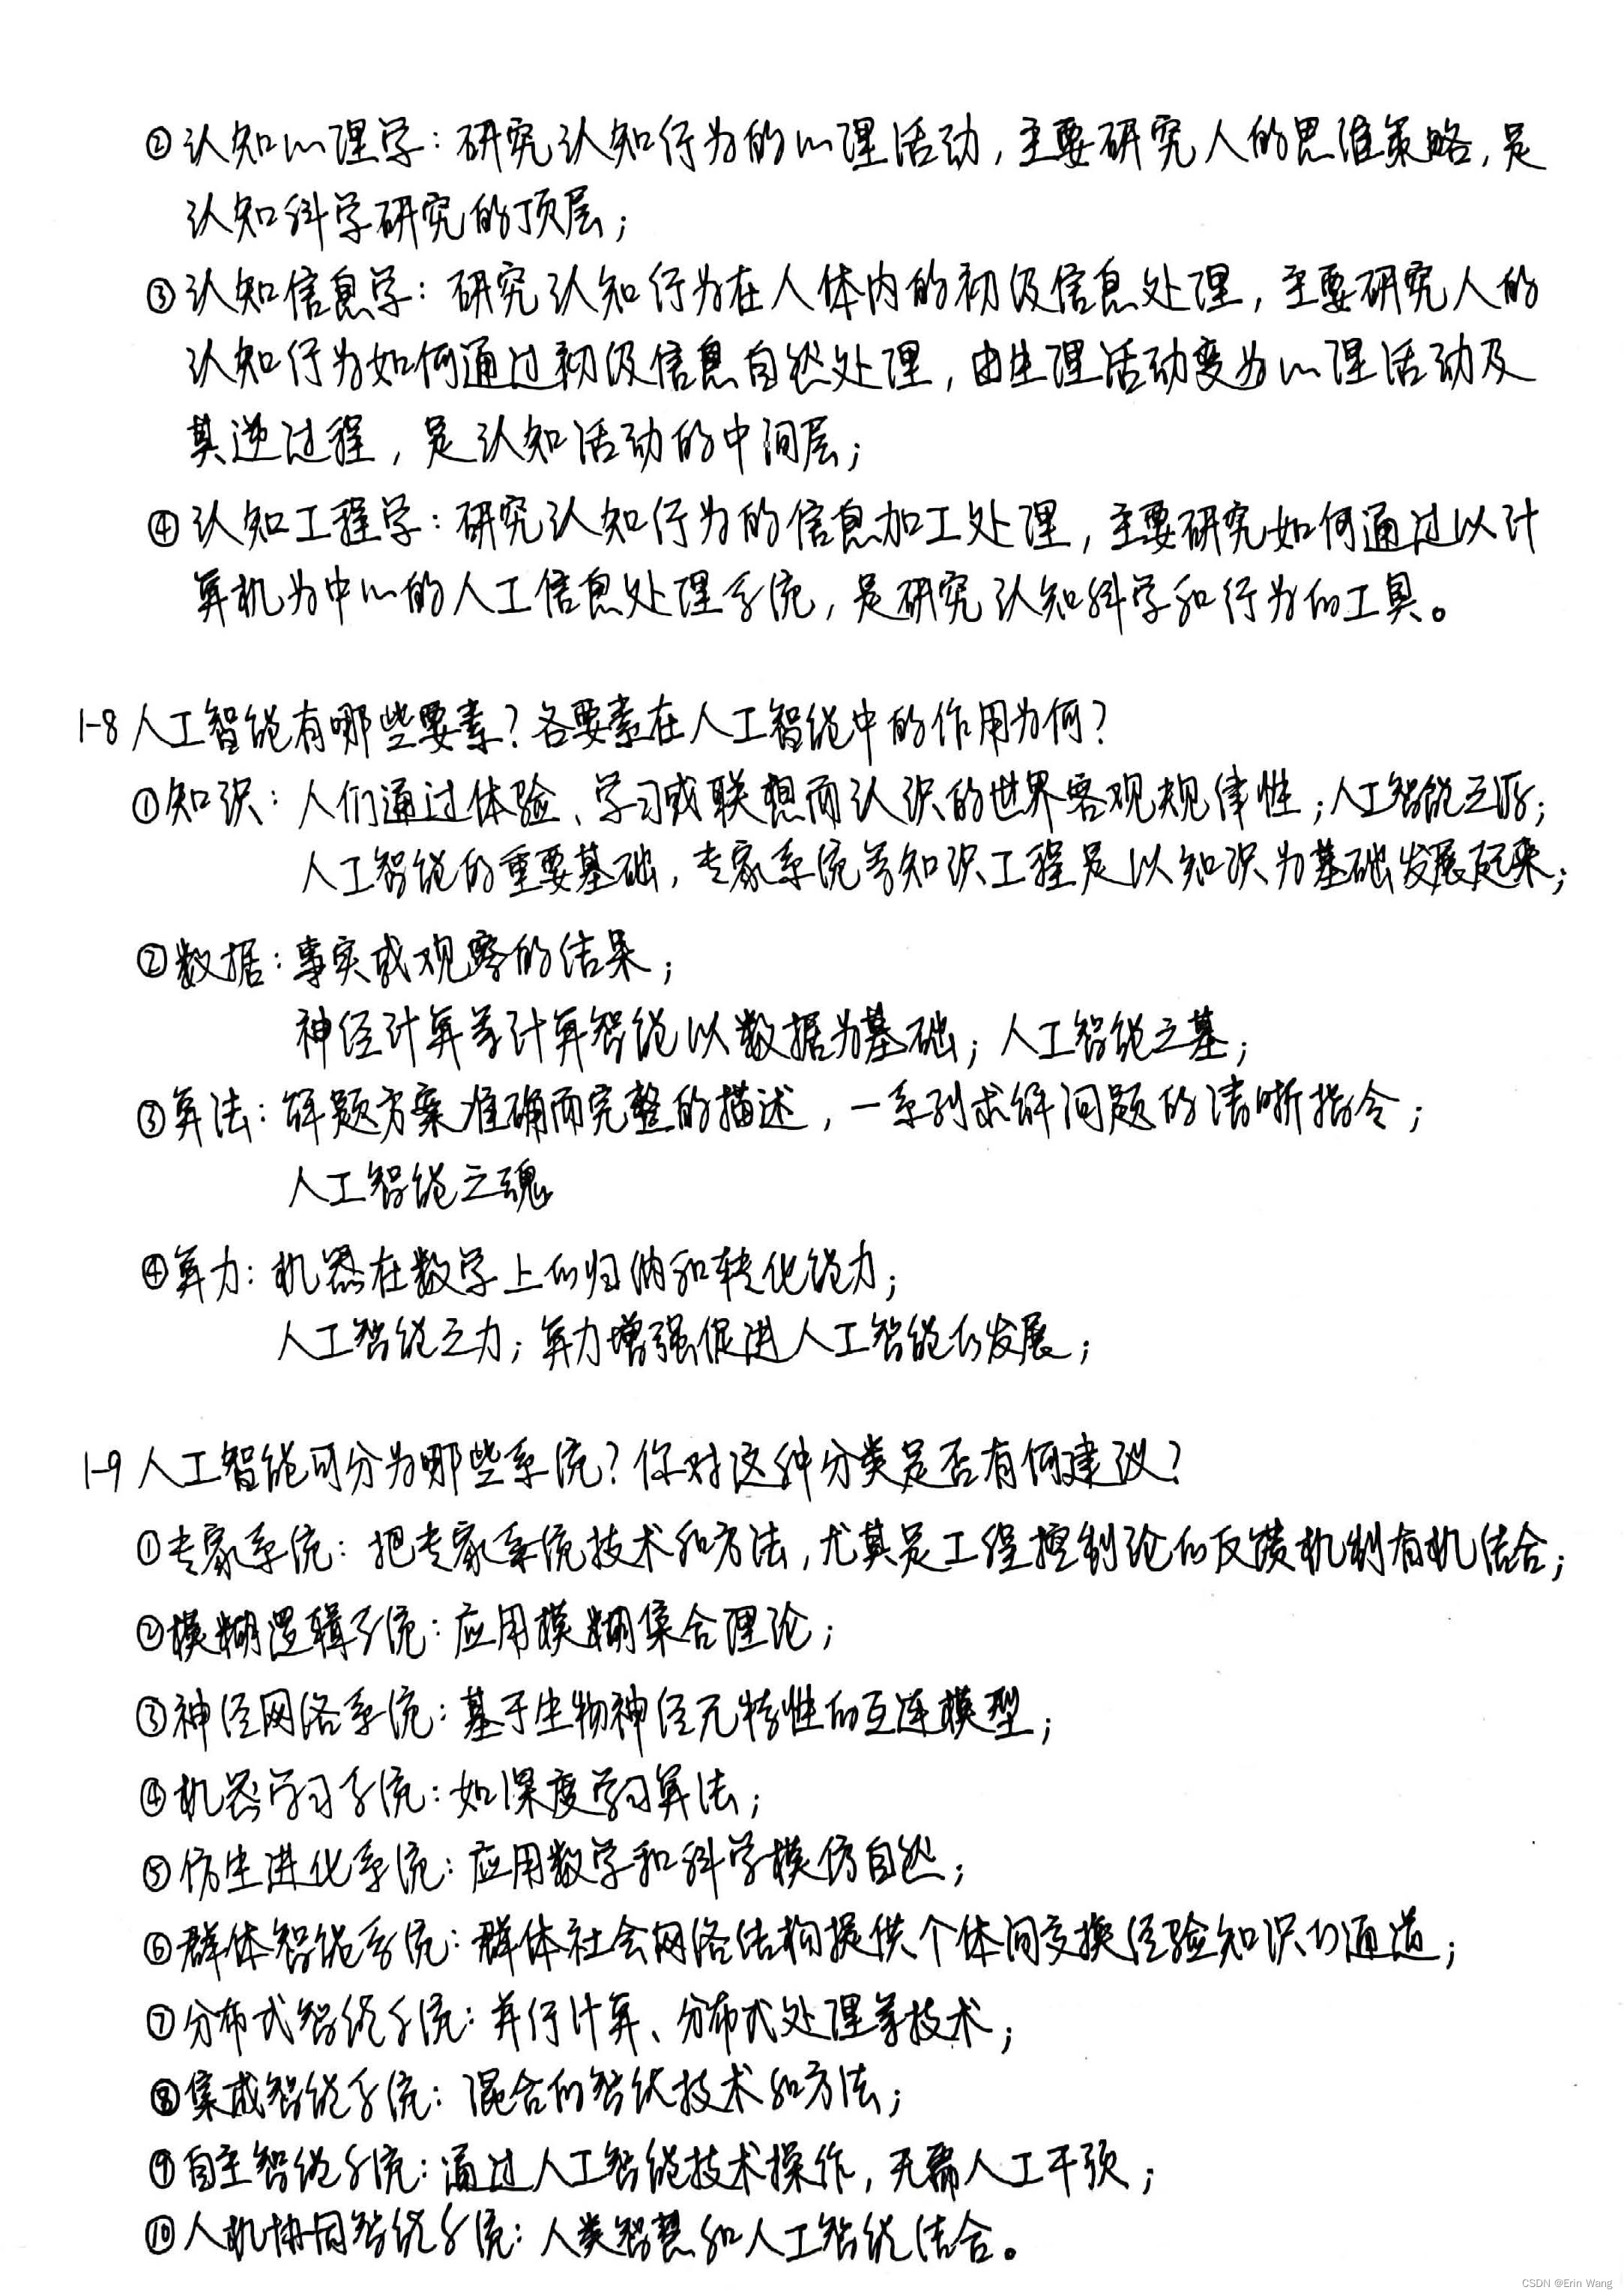 ②认知心理学：研究认知行为的心理活动，主要研究人的思维策略，是
认知科学研究的顶层；
③认知信息学：研究认知行为在人体内的初级信息处理，主要研究人的
认知行为如何通过初级信息自然处理，由生理活动变为心理活动及
其逆过程，是认知活动的中间层；
④认知工程学：研究认知行为的信息加工处理，主要研究如何通过以计
算机为中心的人工信息处理系统，是研究认知科学和行为的工具。
1-8 人工智能有哪些要素？各要素在人工智能中的作用为何？
①知识：人们通过体验、学习或联想而认识的世界客观规律性；人工智能之源；
人工智能的重要基础，专家系统等知识工程是以知识为基础发展起来；
②数据：事实或观察的结果；
神经计算等计算智能以数据为基础；人工智能之基；
③算法：解题方案准确而完整的描述，一系列求解问题的清晰指令；
人工智能之魂
④算力：机器在数学上的归纳和转化能力；
人工智能之力；算力增强促进人工智能的发展；
1-9 人工智能可分为哪些系统？你对这种分类是否有何建议？
①专家系统：把专家系统技术和方法，尤其是工程控制论的反馈机制有机结合；
②模糊逻辑系统：应用模糊集合理论；
③神经网络系统：基于生物神经元特性的互连模型；
④机器学习系统：如深度学习算法；
⑤仿生进化系统：应用数学和科学模仿自然；
⑥群体智能系统：群体社会网络结构提供个体间交换经验知识的通道；
⑦分布式智能系统：并行计算、分布式处理等技术；
⑧集成智能系统：混合的智能技术和方法；
⑨自主智能系统：通过人工智能技术操作，无需人工干预；
⑩人机协同智能系统：人类智慧和人工智能结合。
CSDN @Erin Wang